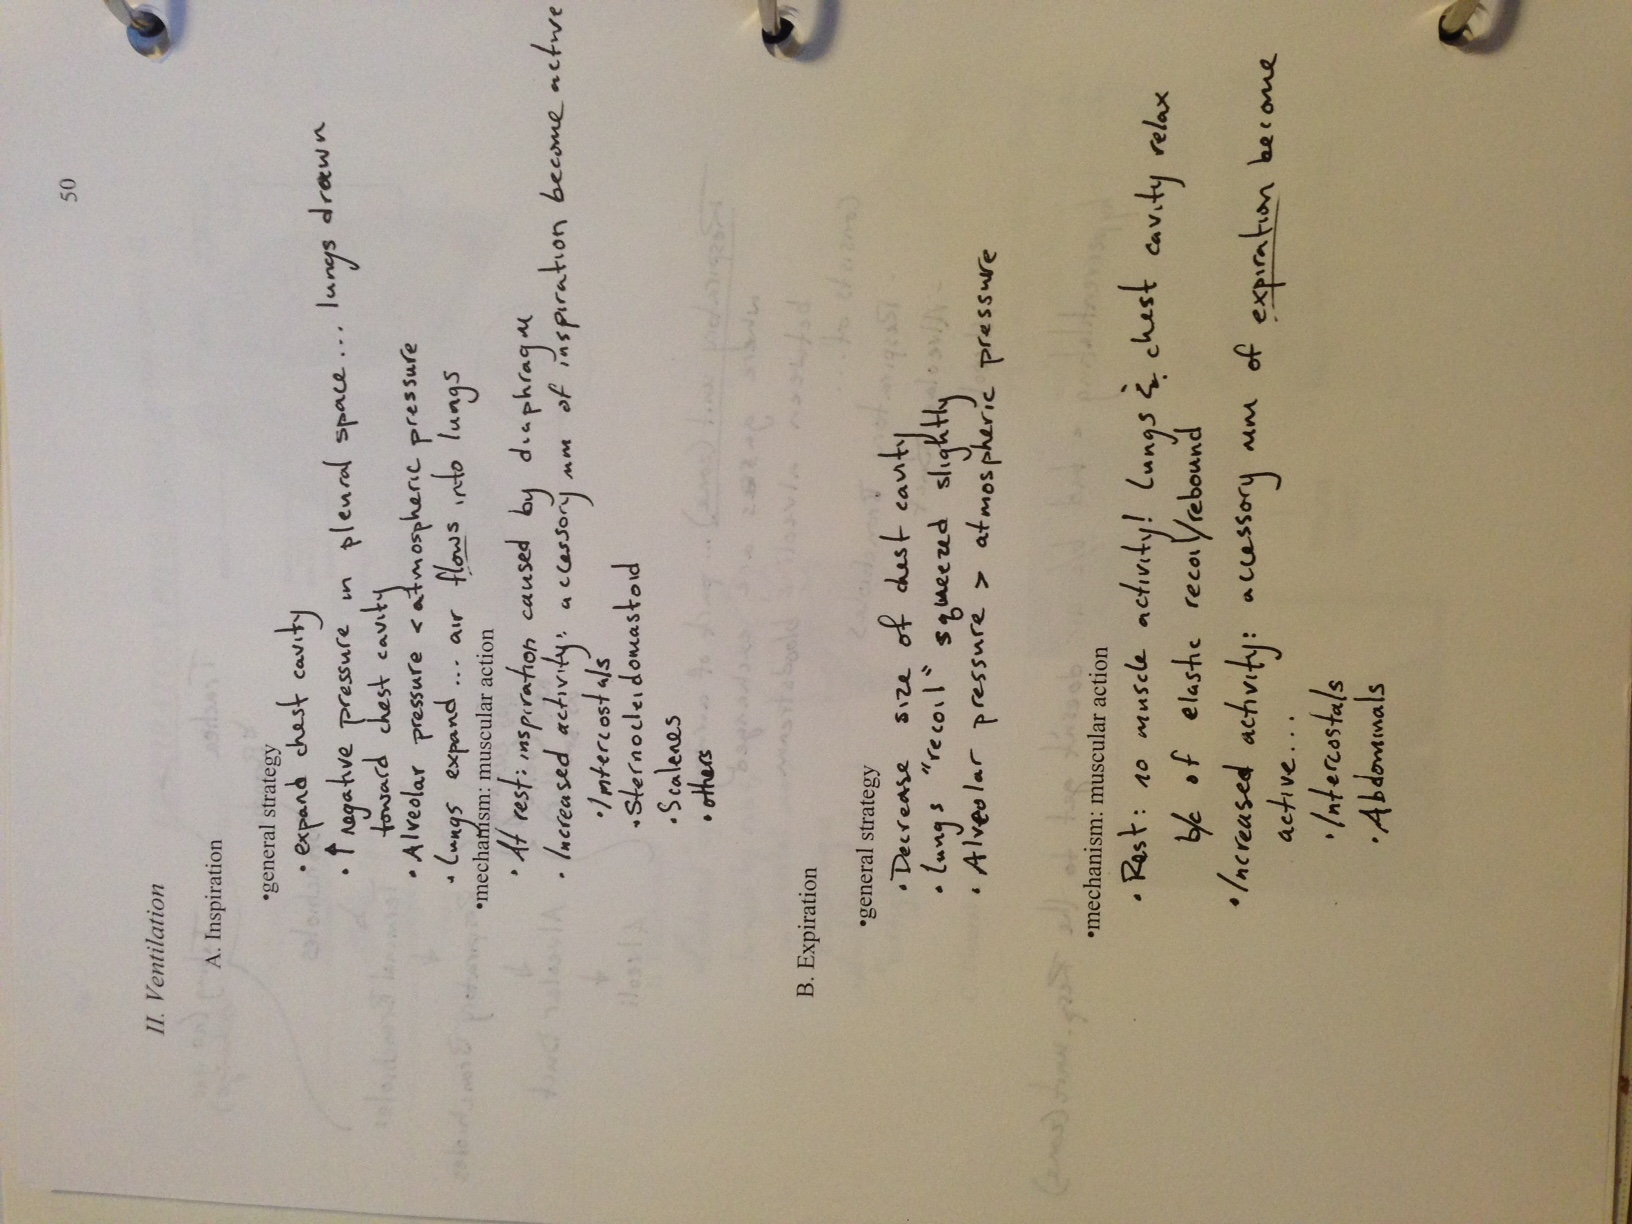 50
II. Ventilation
A. Inspiration
•general strategy
• expand chest cavity
• ↑ negative pressure in pleural space... lungs drawn
toward chest cavity
• Alveolar pressure < atmospheric pressure
• Lungs expand... air flows into lungs
•mechanism: muscular action
• At rest: inspiration caused by diaphragm
• Increased activity: accessory mm of inspiration become active
• Intercostals
• Sternocleidomastoid
• Scalenes
• others
B. Expiration
•general strategy
• Decrease size of chest cavity
• Lungs "recoil" squeezed slightly
• Alveolar pressure > atmospheric pressure
•mechanism: muscular action
• Rest: no muscle activity! Lungs & chest cavity relax
b/c of elastic recoil/rebound
• Increased activity: accessory mm of expiration become
active...
• Intercostals
• Abdominals